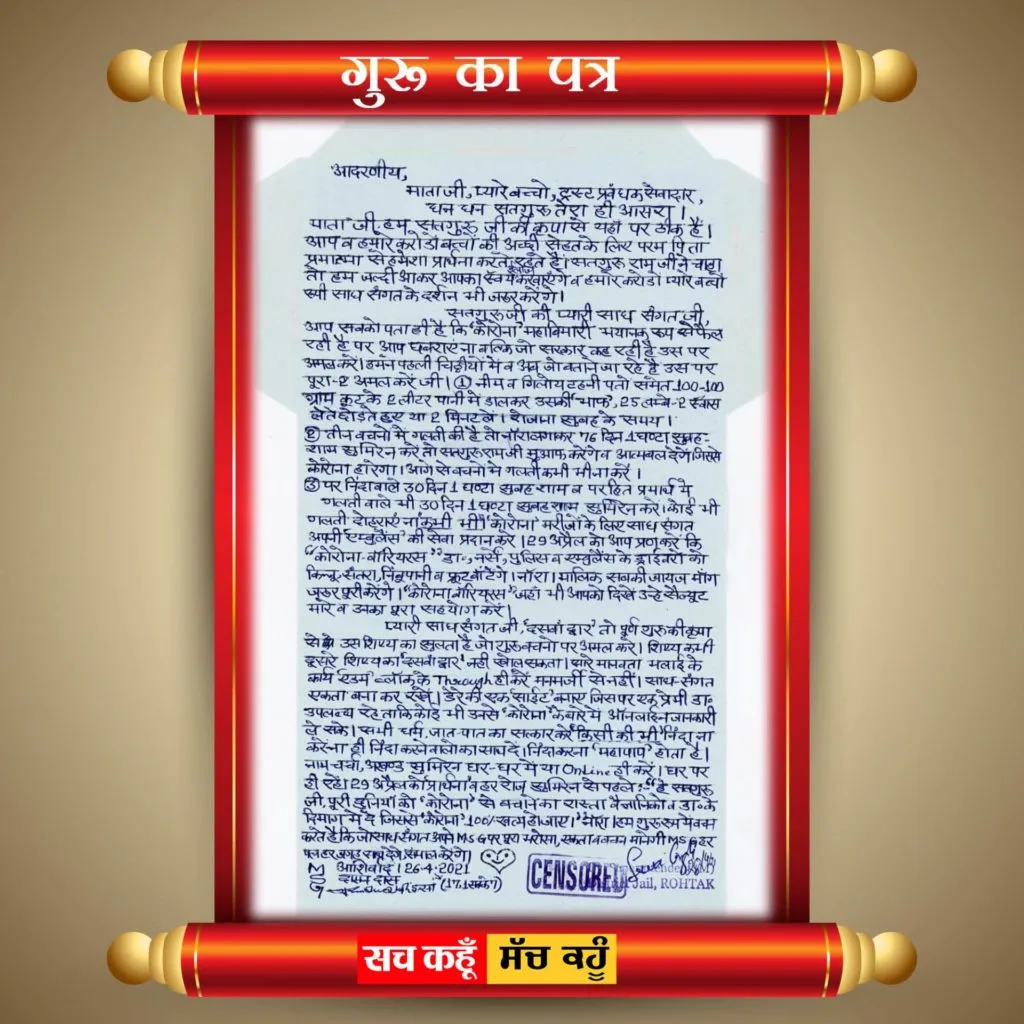 गुरु का पत्र
आदरणीय,
माता जी, प्यारे बच्चो, ट्रस्ट प्रबंधक सेवादार,
धन धन सतगुरु तेरा ही आसरा।
माता जी, हम सतगुरु जी की कृपा से यहाँ पर ठीक हैं।
आप व हमारे करोडों बच्चों की अच्छी सेहत के लिए परम पिता
प्रमात्मा से हमेशा प्रार्थना करते रहते हैं। सतगुरु राम जी ने चाहा
तो हम जल्दी आकर आपका इलाज करवाएंगे व हमारे करोडों प्यारे बच्चों
रूपी साध संगत के दर्शन भी जरूर करेंगे।
सतगुरु जी की प्यारी साध संगत जी,
आप सबको पता ही है कि 'कोरोना' महाबिमारी भयानक रूप से फैल
रही है पर आप घबराएं ना बल्कि जो सरकार कह रही है उस पर
अमल करें। हमने पहली चिठ्ठीयों में व अब जो बताने जा रहे हैं उस पर
पूरा-2 अमल करें जी। ① नीम व गिलोय टहनी पतों समेत 100-100
ग्राम कूट के 2 लीटर पानी में डालकर उसकी 'भाफ' 25 लम्बे-2 स्वास
लेते छोड़ते हुए या 2 मिनट लें। रोजाना सुबह के समय।
② तीन वचनों में गलती की है तो नॉरा लगाकर 76 दिन 1 घण्टा सुबह-
शाम सुमिरन करें तो सतगुरु राम जी मुआफ करेंगे व आत्मबल देंगे जिससे
कोरोना हारेगा। आगे से वचनों में गलती कभी भी ना करें।
③ पर निंदा वाले 30 दिन 1 घण्टा सुबह शाम व परहित प्रमार्थ में
गलती वाले भी 30 दिन 1 घण्टा सुबह शाम सुमिरन करें। कोई भी
गलती दोहराएं ना कभी भी। 'कोरोना' मरीजों के लिए साध संगत
अपनी 'एम्बुलैंस' की सेवा प्रदान करे। 29 अप्रैल को आप प्रण करें कि
"कोरोना-वॉरियरस" डा॰, नर्से, पुलिस व एम्बुलैंस के ड्राईवरों को
किन्नू-संतरा, निंबूपानी व फ्रूट बाँटेंगे। नॉरा। मालिक सबकी जायज माँग
जरूर पूरी करेंगे। "कोरोना वॉरियरस" जहाँ भी आपको दिखें उन्हें सैल्यूट
मारें व उनका पूरा सहयोग करें।
प्यारी साध संगत जी, 'दसवाँ द्वार' तो पूर्ण गुरु की कृपा
से उस शिष्य का खुलता है जो गुरु वचनों पर अमल करे। शिष्य कभी
दूसरे शिष्य का 'दसवाँ द्वार' नहीं खोल सकता। सारे मानवता भलाई के
कार्य एडम ब्लॉक के Through ही करें मनमर्जी से नहीं। साध-संगत
एकता बना कर रखें। डेरे की एक 'साईट' बनाएं जिस पर एक प्रेमी डा॰
उपलब्ध रहे ताकि कोई भी उनसे 'कोरोना' के बारे में ऑनलाईन जानकारी
ले सके। सभी धर्म, जात-पात का सत्कार करें किसी की भी निंदा ना
करें ना ही निंदा करने वालों का साथ दें। निंदा करना 'महापाप' होता है।
नाम चर्चा, अखण्ड सुमिरन घर-घर में या Online ही करें। घर पर
ही रहें। 29 अप्रैल को प्रार्थना व हर रोज सुमिरन से पहले : "हे सतगुरु
जी, पूरी दुनियाँ को 'कोरोना' से बचाने का रास्ता वैज्ञानिकों व डा॰ के
दिमाग में दें जिससे 'कोरोना' 100% खत्म हो जाए।" नॉरा। हम गुरु रूप में वचन
करते हैं कि जो साध संगत अपने MSG पर पूरा भरोसा, एकता व वचन मानेगी MSG हर
पल हर जगह साथ देंगे, संभाल करेंगे।
MSG
आशिर्वाद। 26-4-2021
दासन दास
CENSORED
Jail, ROHTAK
सच कहूँ ਸੱਚ ਕਹੂੰ